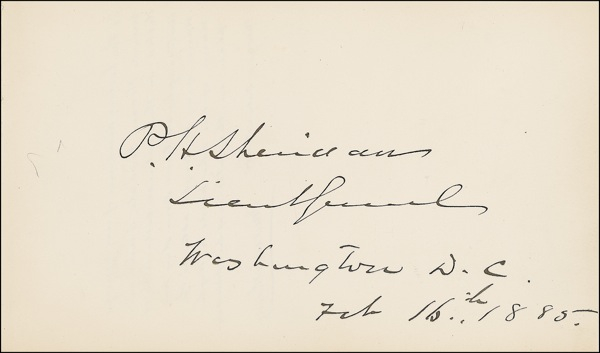 P. H. Sheridan
Lieut General
Washington D. C.
Feb 16th 1885.